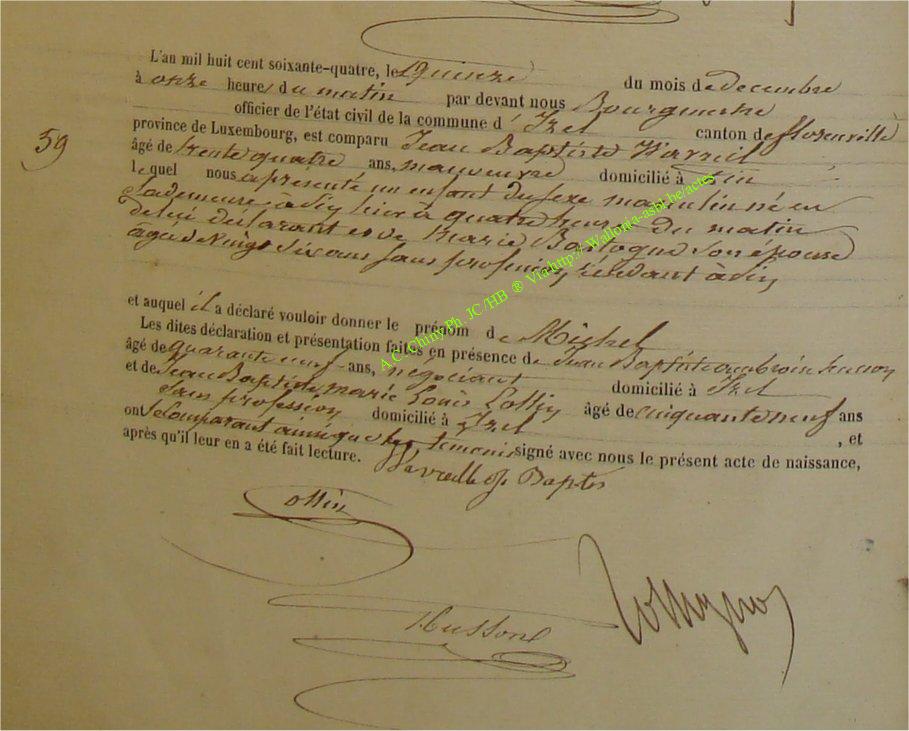 L'an mil huit cent soixante-quatre, le Quinze du mois de decembre
à onze heures du matin par devant nous Bourgmestre
officier de l'état civil de la commune d' Izel canton de florenville
59
province de Luxembourg, est comparu Jean Baptiste
âgé de trente quatre ans, manoeuvre domicilié à
lequel nous a présenté un enfant du sexe masculin né en
sa demeure à quatre heures du matin
de lui déclarant et de Marie son épouse
agée de Vingt Six ans sans profession
et auquel il a déclaré vouloir donner le prénom de Michel
Les dites déclaration et présentation faites en présence de Jean Baptiste ambroise husson
âgé de quarante neuf ans, négociant domicilié à Izel
et de Jean Baptiste marie Louis Collin âgé de cinquante neuf ans
Sans profession domicilié à Izel , et
ont le Comparant ainsi que les temoins signé avec nous le présent acte de naissance,
après qu'il leur en a été fait lecture.
Baptis
Collin
Husson
A.C. Chiny Ph. JC/HB ® Via http://Wallonia-asbl.be/actes